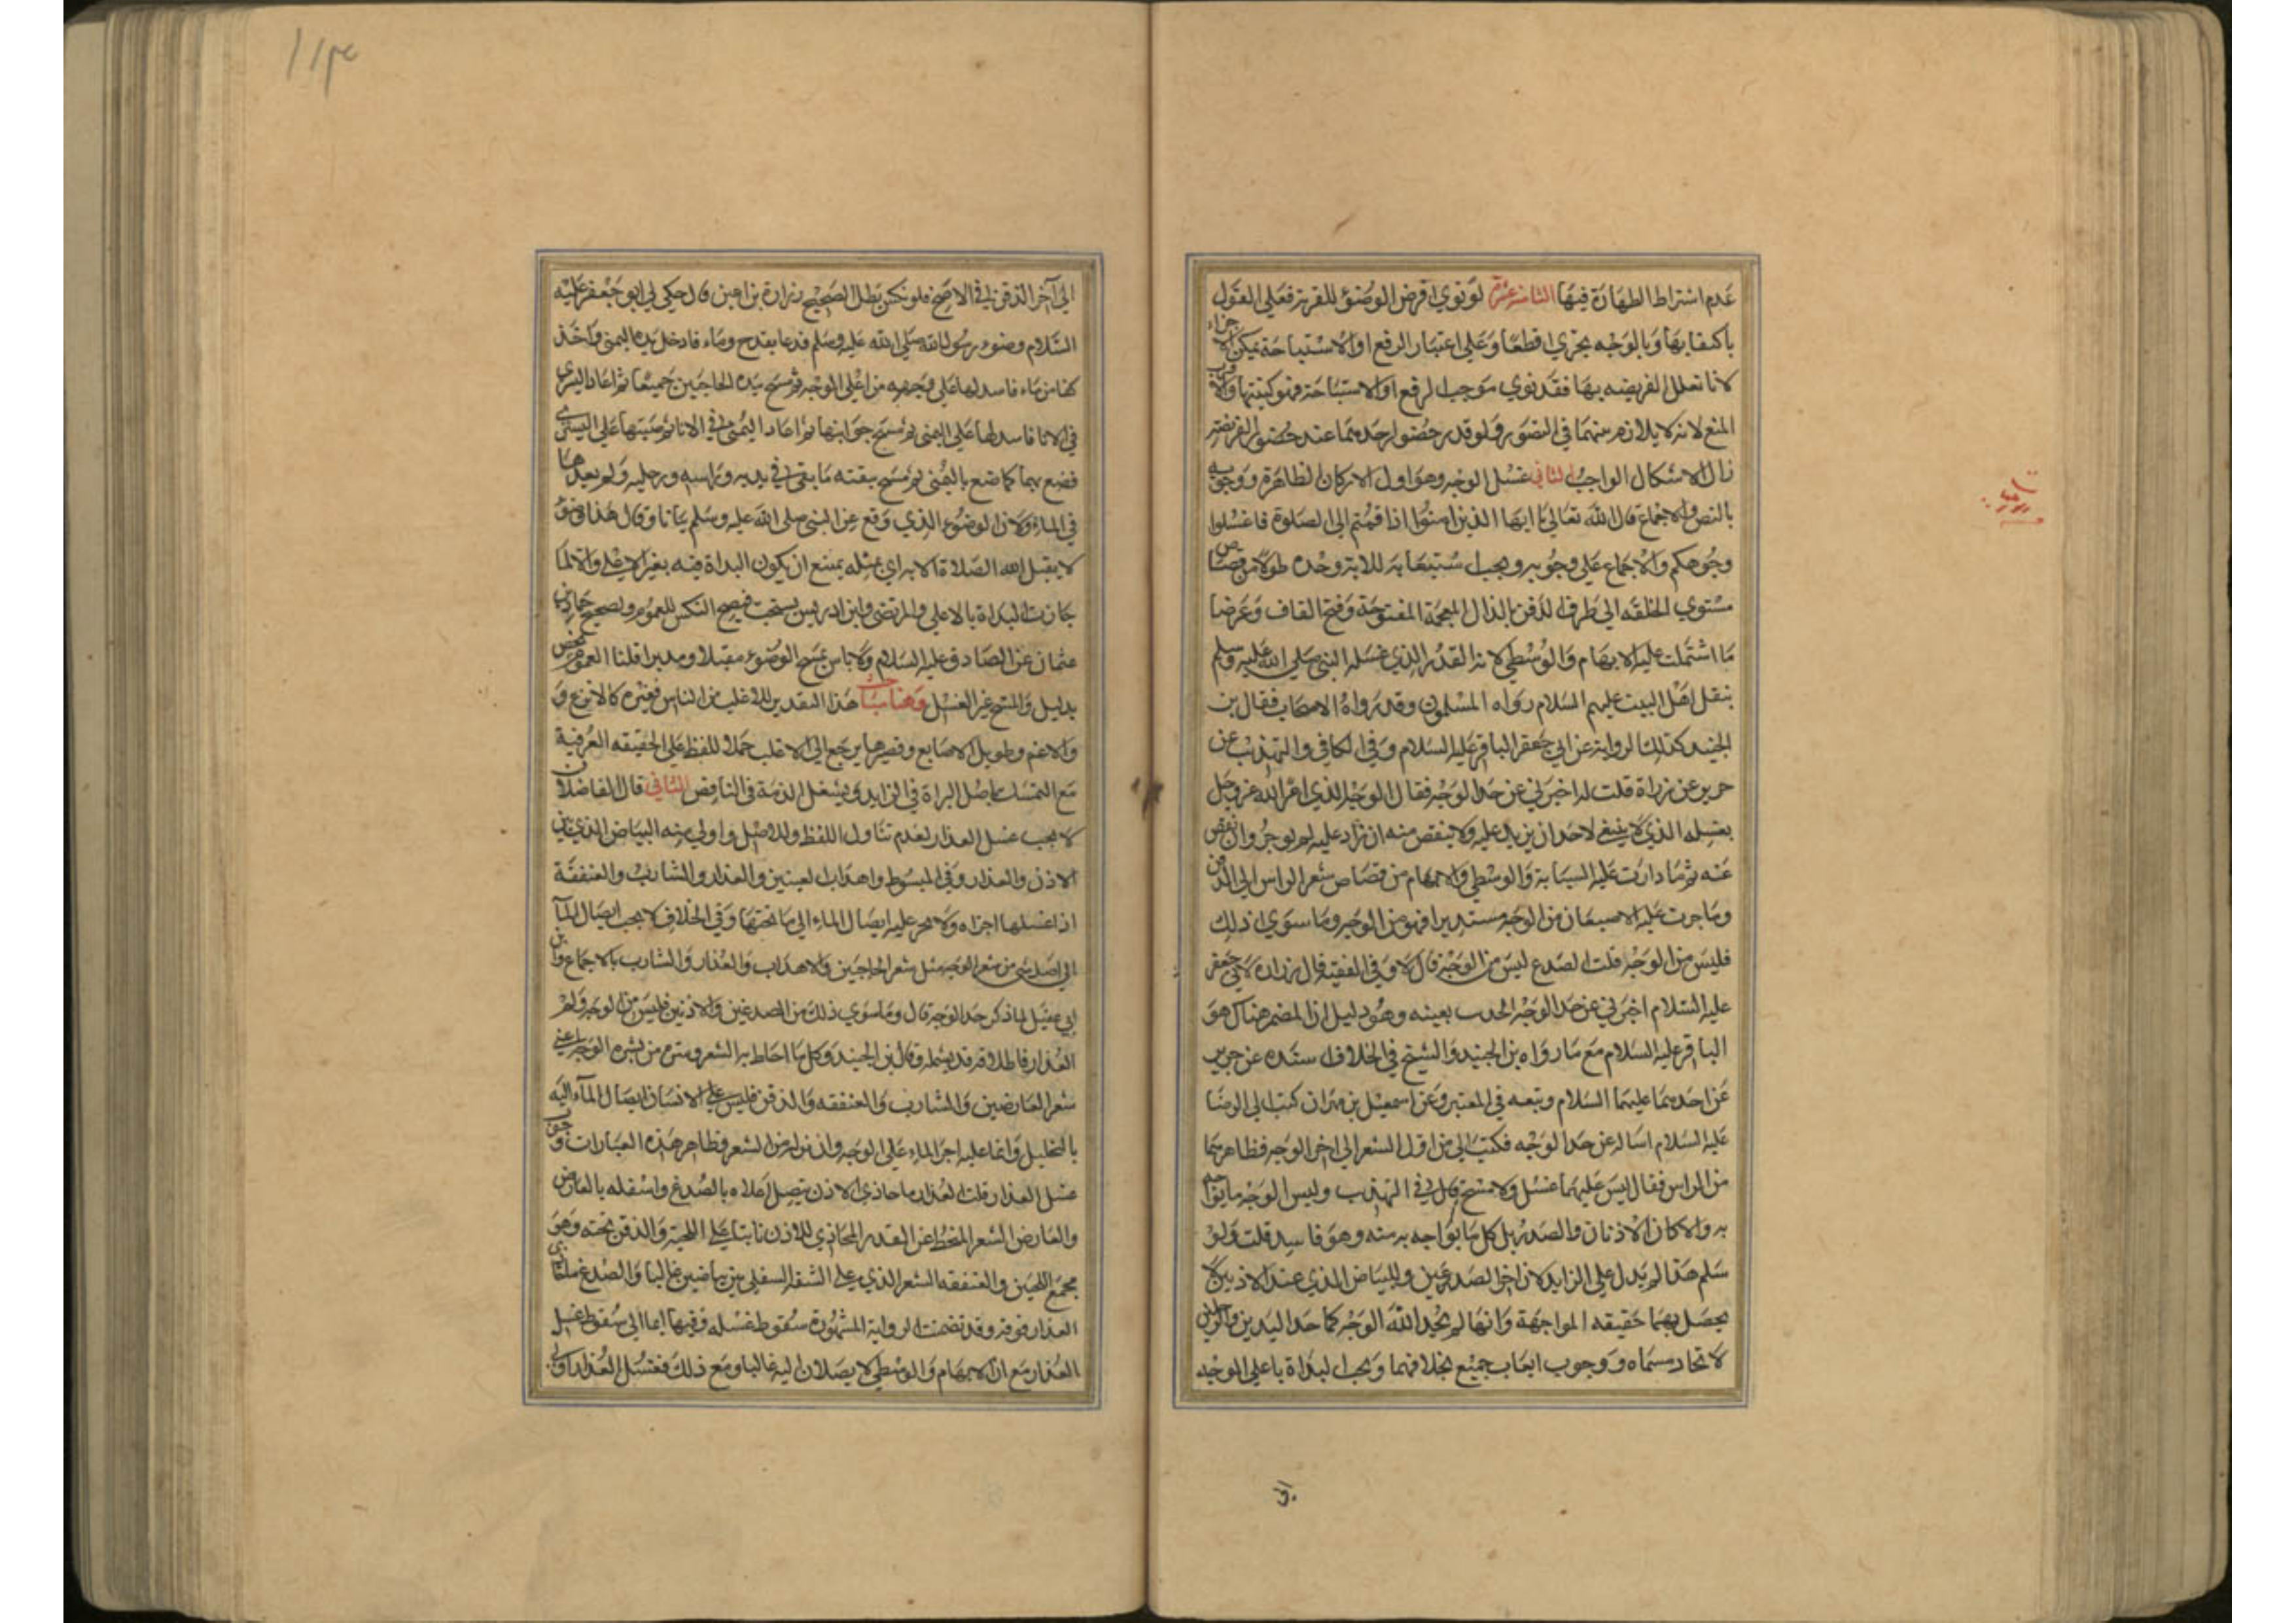 عدم اشتراط الطهارة فيها الثامنة عشرة لو نوي اقرض الوضوء للقربة فعلي القول
باكتفا بها وبالوجه يجزي قطعا وعلي اعتبار الرفع او الاستباحة يمكن الاجزاء
لانا تعلل الفريضه بها فقد نوي موجب الرفع او الاستباحة فهو كنيتها والاقرب
المنع لانه لا يلازم بينهما في التصور ولو قدر حضور احدهما عند حضور الفريضة
زال الاشكال الواجب الثاني غسل الوجه وهو اول الاركان الظاهرة ووجوبه
بالنص والاجماع قال الله تعالي يا ايها الذين امنوا اذا قمتم الي الصلوة فاغسلوا
وجوهكم والاجماع علي وجوبه ويجب استيعابه للاية وحده طولا من قصاص
مستوي الخلقه الي طرف الذقن بالذال المعجمة المفتوحة وفتح القاف وعرضا
ما اشتملت عليه الابهام والوسطي لانه القدر الذي غسله النبي صلي الله عليه وسلم
بنقل اهل البيت عليهم السلام رواه المسلمون وقد رواه الاصحاب فقال بن
الجنيد كذلك الرواية عن ابي جعفر الباقر عليه السلام وفي الكافي والتهذيب عن
حريز عن زرارة قلت له اخبرني عن حد الوجه فقال الوجه الذي امر الله عز وجل
بغسله الذي لا ينبغي لاحد ان يزيد عليه ولا ينقص منه ان زاد عليه لم يوجر وان نقص
عنه ثم ما دارت عليه السبابة والوسطي والابهام من قصاص شعر الراس الي الذقن
وما جرت عليه الاصبعان من الوجه مستديرا فهو من الوجه وما سوي ذلك
فليس من الوجه قلت الصدغ ليس من الوجه قال لا وفي الفقيه قال زرارة لابي جعفر
عليه السلام اخبرني عن حد الوجه الحديث بعينه وهو دليل ان المضمر هناك هو
الباقر عليه السلام مع ما رواه بن الجنيد والشيخ في الخلاف اسنده عن حريز
عن احدهما عليهما السلام وتبعه في المعتبر وعن اسمعيل بن مهران كتبت الي الرضا
عليه السلام اساله عن حد الوجه فكتب الي من اول الشعر الي اخر الوجه فظاهرهما
من الراس فقال ليس عليهما غسل ولا مسح قال في التهذيب وليس الوجه ما يواجه
به والا كان الاذنان والصدر بل كل ما يواجه به منه وهو فاسد قلت ولو
سلم هذا لم يدل علي الزايد لان اخر الصدغين والبياض الذي عند الاذنين لا
يحصل بهما حقيقه المواجهة وانها لم يحد الله الوجه كما حد اليدين والرجلين
لاتحاد مسماه ووجوب ايعاب جميع بخلافهما ويجب البداة باعلي الوجه
الي
الي آخر الذقن في الاصح فلو نكس بطل الصحيح زرارة بن اعين قال حكي لي ابو جعفر عليه
السلام وضوء رسول الله صلي الله عليه وسلم فدعا بقدح وماء فادخل يده اليمني واخذ
كفا من ماء فاسدلها علي وجهه من اعلي الوجه ثم مسح بيده الحاجبين جميعا ثم اعاد اليسري
في الانا فاسدلها علي اليمني ثم مسح جوانبها ثم اعاد اليمني في الانا ثم صبتها علي اليسري
فصنع بها كما صنع باليمني ثم مسح ببقية ما بقي في يديه وراسه ورجليه ولم يعدهما
في الماء ولان الوضوء الذي وقع عن النبي صلي الله عليه وسلم بيانا وقال هذا وضوء
لا يقبل الله الصلاة الا به اي بمثله يمتنع ان يكون البداة فيه بغير الاعلي والا لما
جازت البداة بالاعلي والمرتضي وابن ادريس يستحب فيصح النكس للعموم ولصحيح حماد بن
عثمان عن الصادق عليه السلام ولا باس بمسح الوضوء مقبلا ومدبرا قلنا العموم مخصص
بدليل والمسح غير الغسل وهنا مباحث هذا التقدير للاغلب من الناس فغيره كالانزع و
والاغم وطويل الاصابع وقصيرها يرجع الي الاغلب حملا للفظ علي الحقيقه العرفية
مع التمسك باصل البراة في الزايد ويشغل الذمة في الناقص الثاني قال الفاضلان
لا يجب غسل العذار لعدم تناول اللفظ وللاصل واولي منه البياض الذي بين
الاذن والعذار وفي المبسوط واهداب العينين والعذار والشارب والعنفقة
اذا غسلها اجزاه ولا يجب عليه ايصال الماء الي ما تحتها وفي الخلاف لا يجب ايصال الماء
الي اصل شي من شعر الوجه مثل شعر الحاجبين والاهداب والعذار والشارب بالاجماع وابن
ابي عقيل لما ذكر حد الوجه قال وما سوي ذلك من الصدغين والاذنين فليس من الوجه ولم
العذار فاطلاقه قد يشمله وقال بن الجنيد وكل ما احاط به الشعر وستره من بشرة الوجه اعني
شعر العارضين والشارب والعنفقه والذقن فليس علي الانسان ايصال الماء اليه
بالتخليل وانما عليه اجرا الماء علي الوجه والساتر له من الشعر فظاهر هذه العبارات وجوب
غسل العذار قلت العذار ما حاذي الاذن يتصل اعلاه بالصدغ واسفله بالعارض
والعارض الشعر المنحط عن القدر المحاذي للاذن نابتا علي اللحية والذقن تحته وهو
مجمع اللحيين والعنفقه الشعر الذي علي الشفة السفلي بين بياضين غالبا والصدغ ما
العذار فوقه وقد تضمنت الرواية المشهورة سقوط غسله وفيها ايما الي سقوط غسل
العذار مع ان الابهام والوسطي لا يصلان اليه غالبا ومع ذلك فغسل العذار اولي